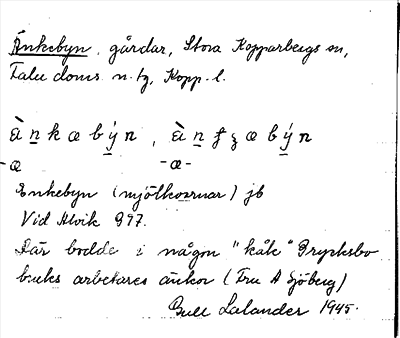 Änkebyn, gårdar, Stora Kopparbergs sn,
Falu doms. n. tg, Kopp. l.
ä̀ n k æ b ý n, ä̀ n ʈ ʒ æ b ý n
-æ -æ-
Enkebyn (mjölkvarnar) jb
Vid Alvik 977.
Där bodde i någon "kåk" Grycksbo
bruks arbetares änkor (Fru A Sjöberg)
Bull Lalander 1945.